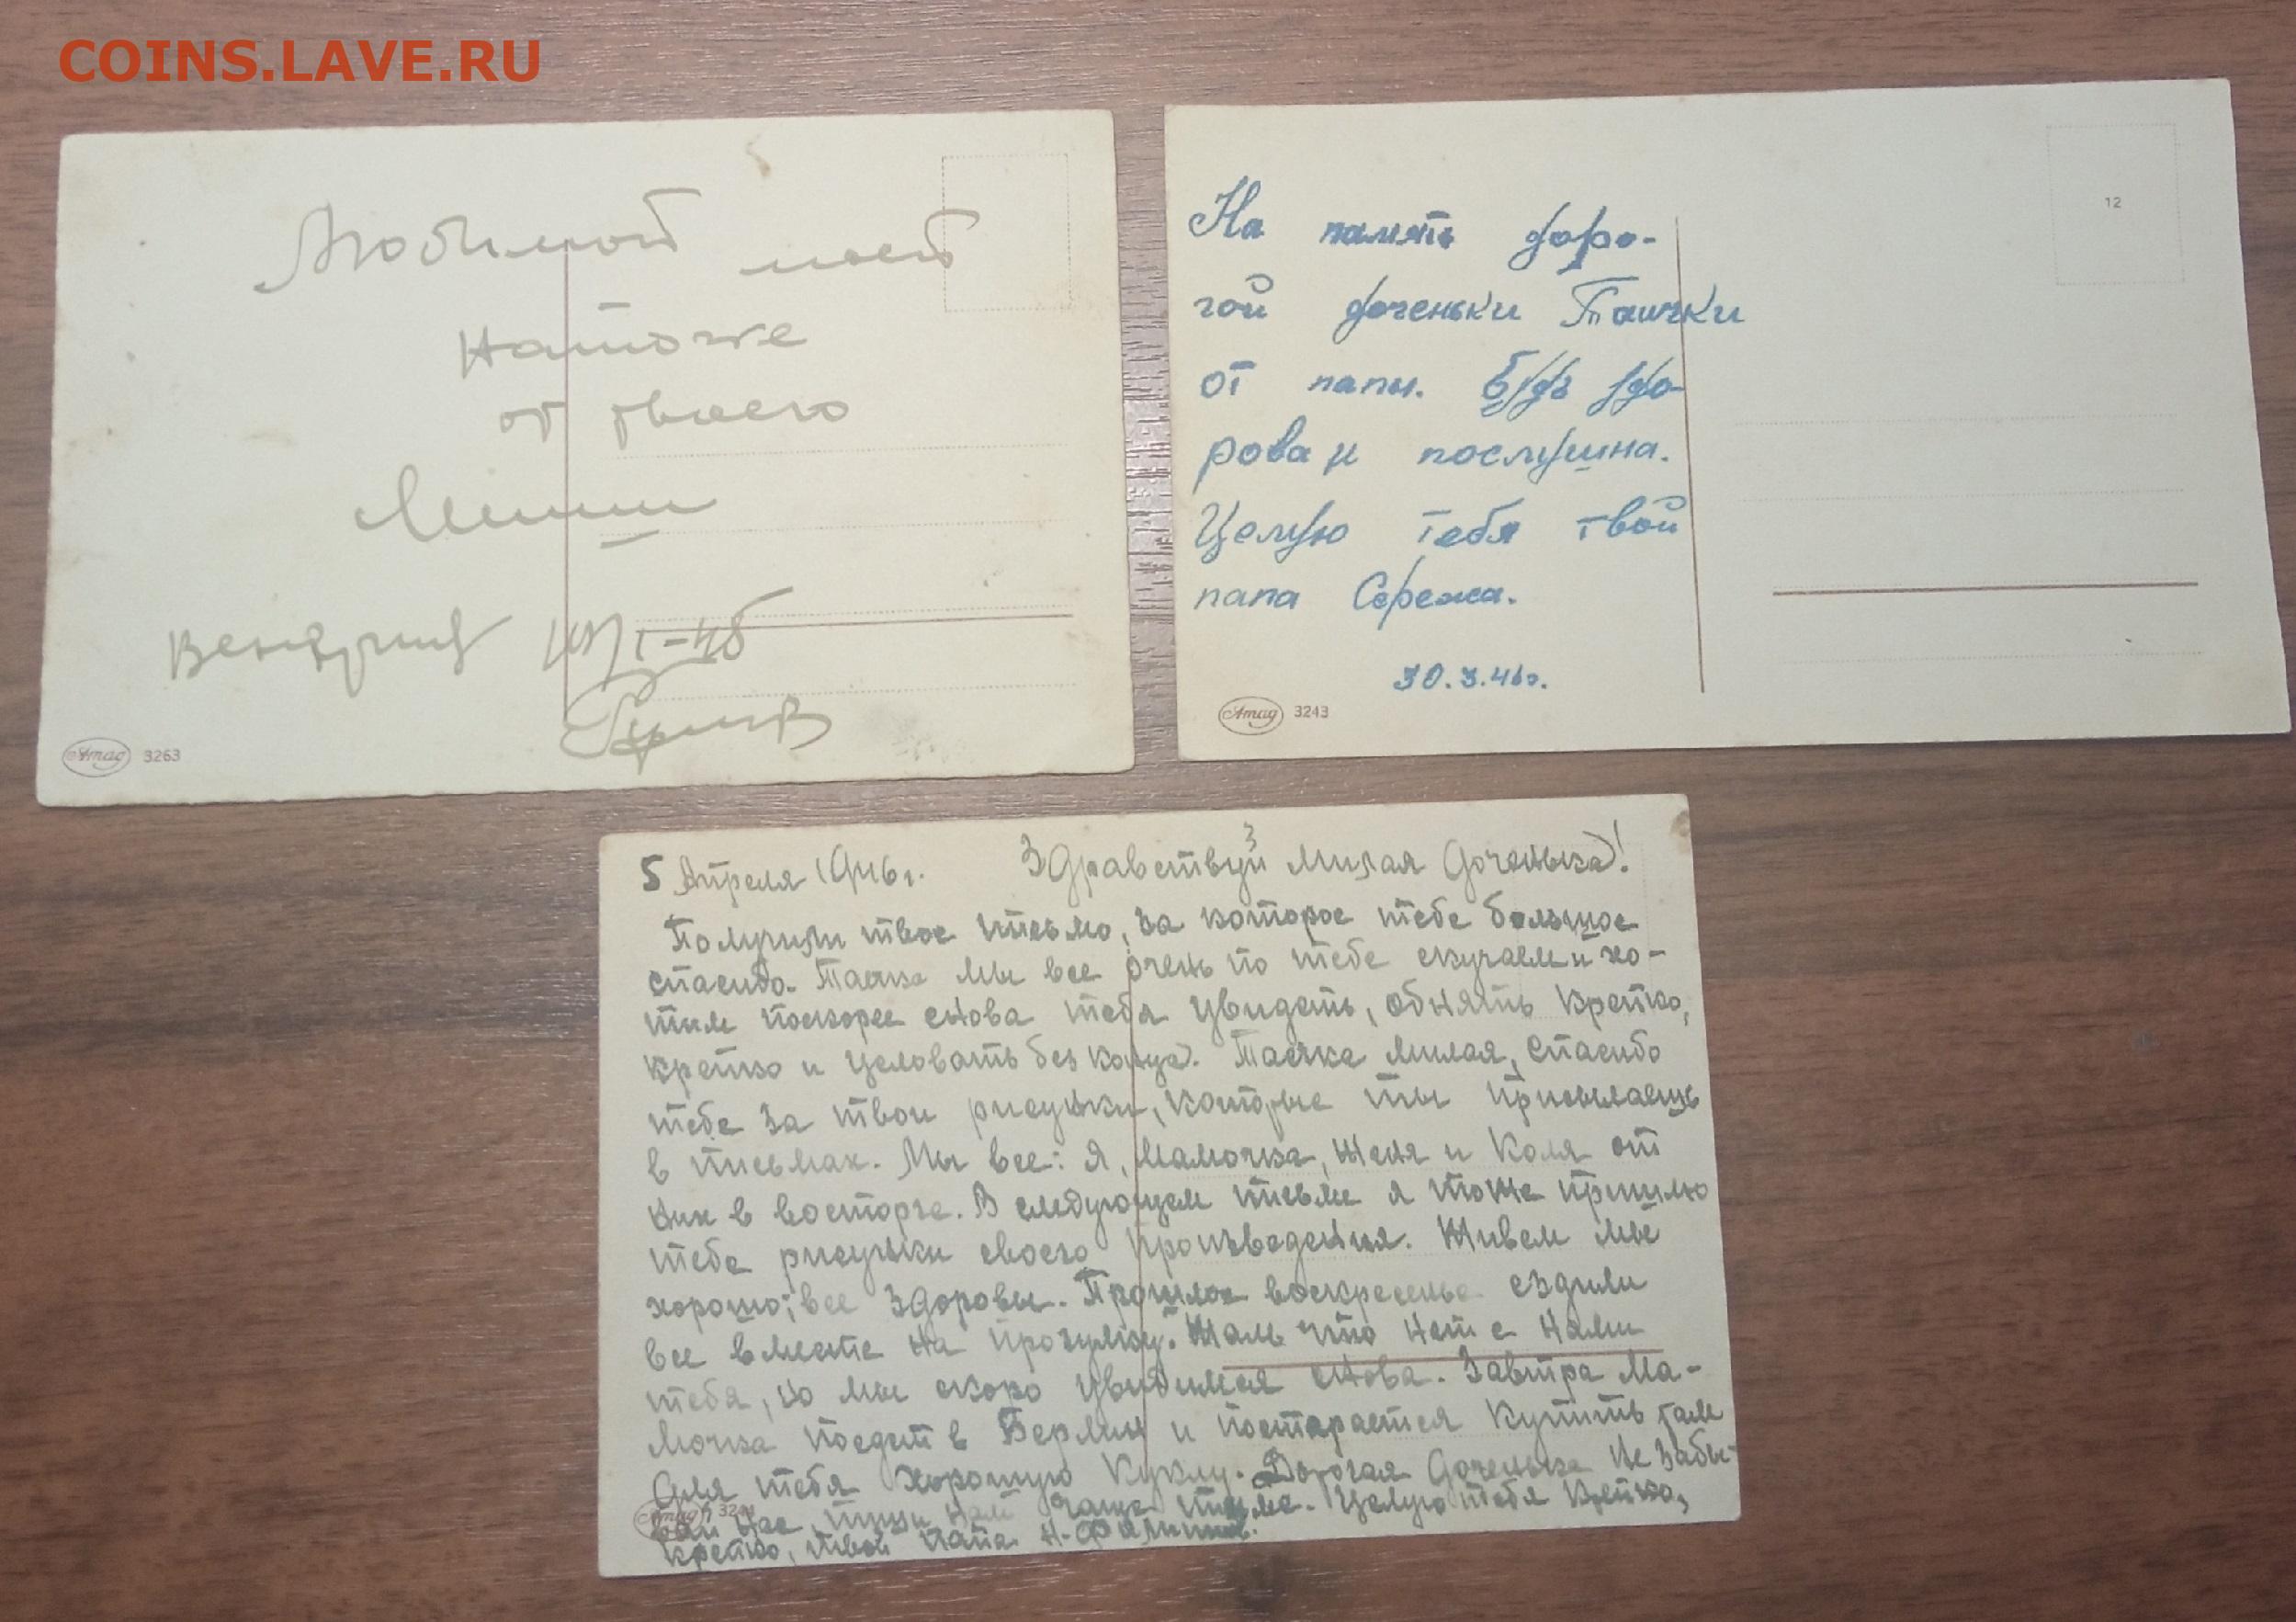 COINS.LAVE.RU
Любимой моей
Наточке
от твоего
Миши
Венгрия
Amag 3263
12
На память доро-
гой доченьки Таички
от папы. Будь здо-
рова и послушна.
Целую тебя твой
папа Сережа.
30.3.46г.
Amag 3243
5 Апреля 1946г. Здравствуй милая доченька!
Получили твое письмо, за которое тебе большое
спасибо. Таечка мы все очень по тебе скучаем и хо-
тим поскорее снова тебя увидеть, обнять крепко,
крепко и целовать без конца. Таечка милая, спасибо
тебе за твои рисунки, которые ты присылаешь
в письмах. Мы все: я, мамочка, Женя и Коля от
них в восторге. В следующем письме я тоже пришлю
тебе рисунки своего произведения. Живем мы
хорошо; все здоровы. Прошлое воскресенье ездили
все вместе на прогулку. Жаль что нет с нами
тебя, но мы скоро увидимся снова. Завтра ма-
мочка поедет в Берлин и постарается купить там
для тебя хорошую куклу. Дорогая доченька не забы-
вай нас, пиши нам чаще письма. Целую тебя крепко,
крепко, твой папа
Amag